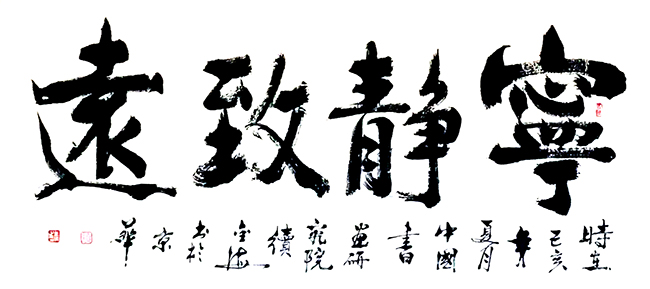 寧靜致遠
時在己亥年夏月中國書畫研究院續金书於京華